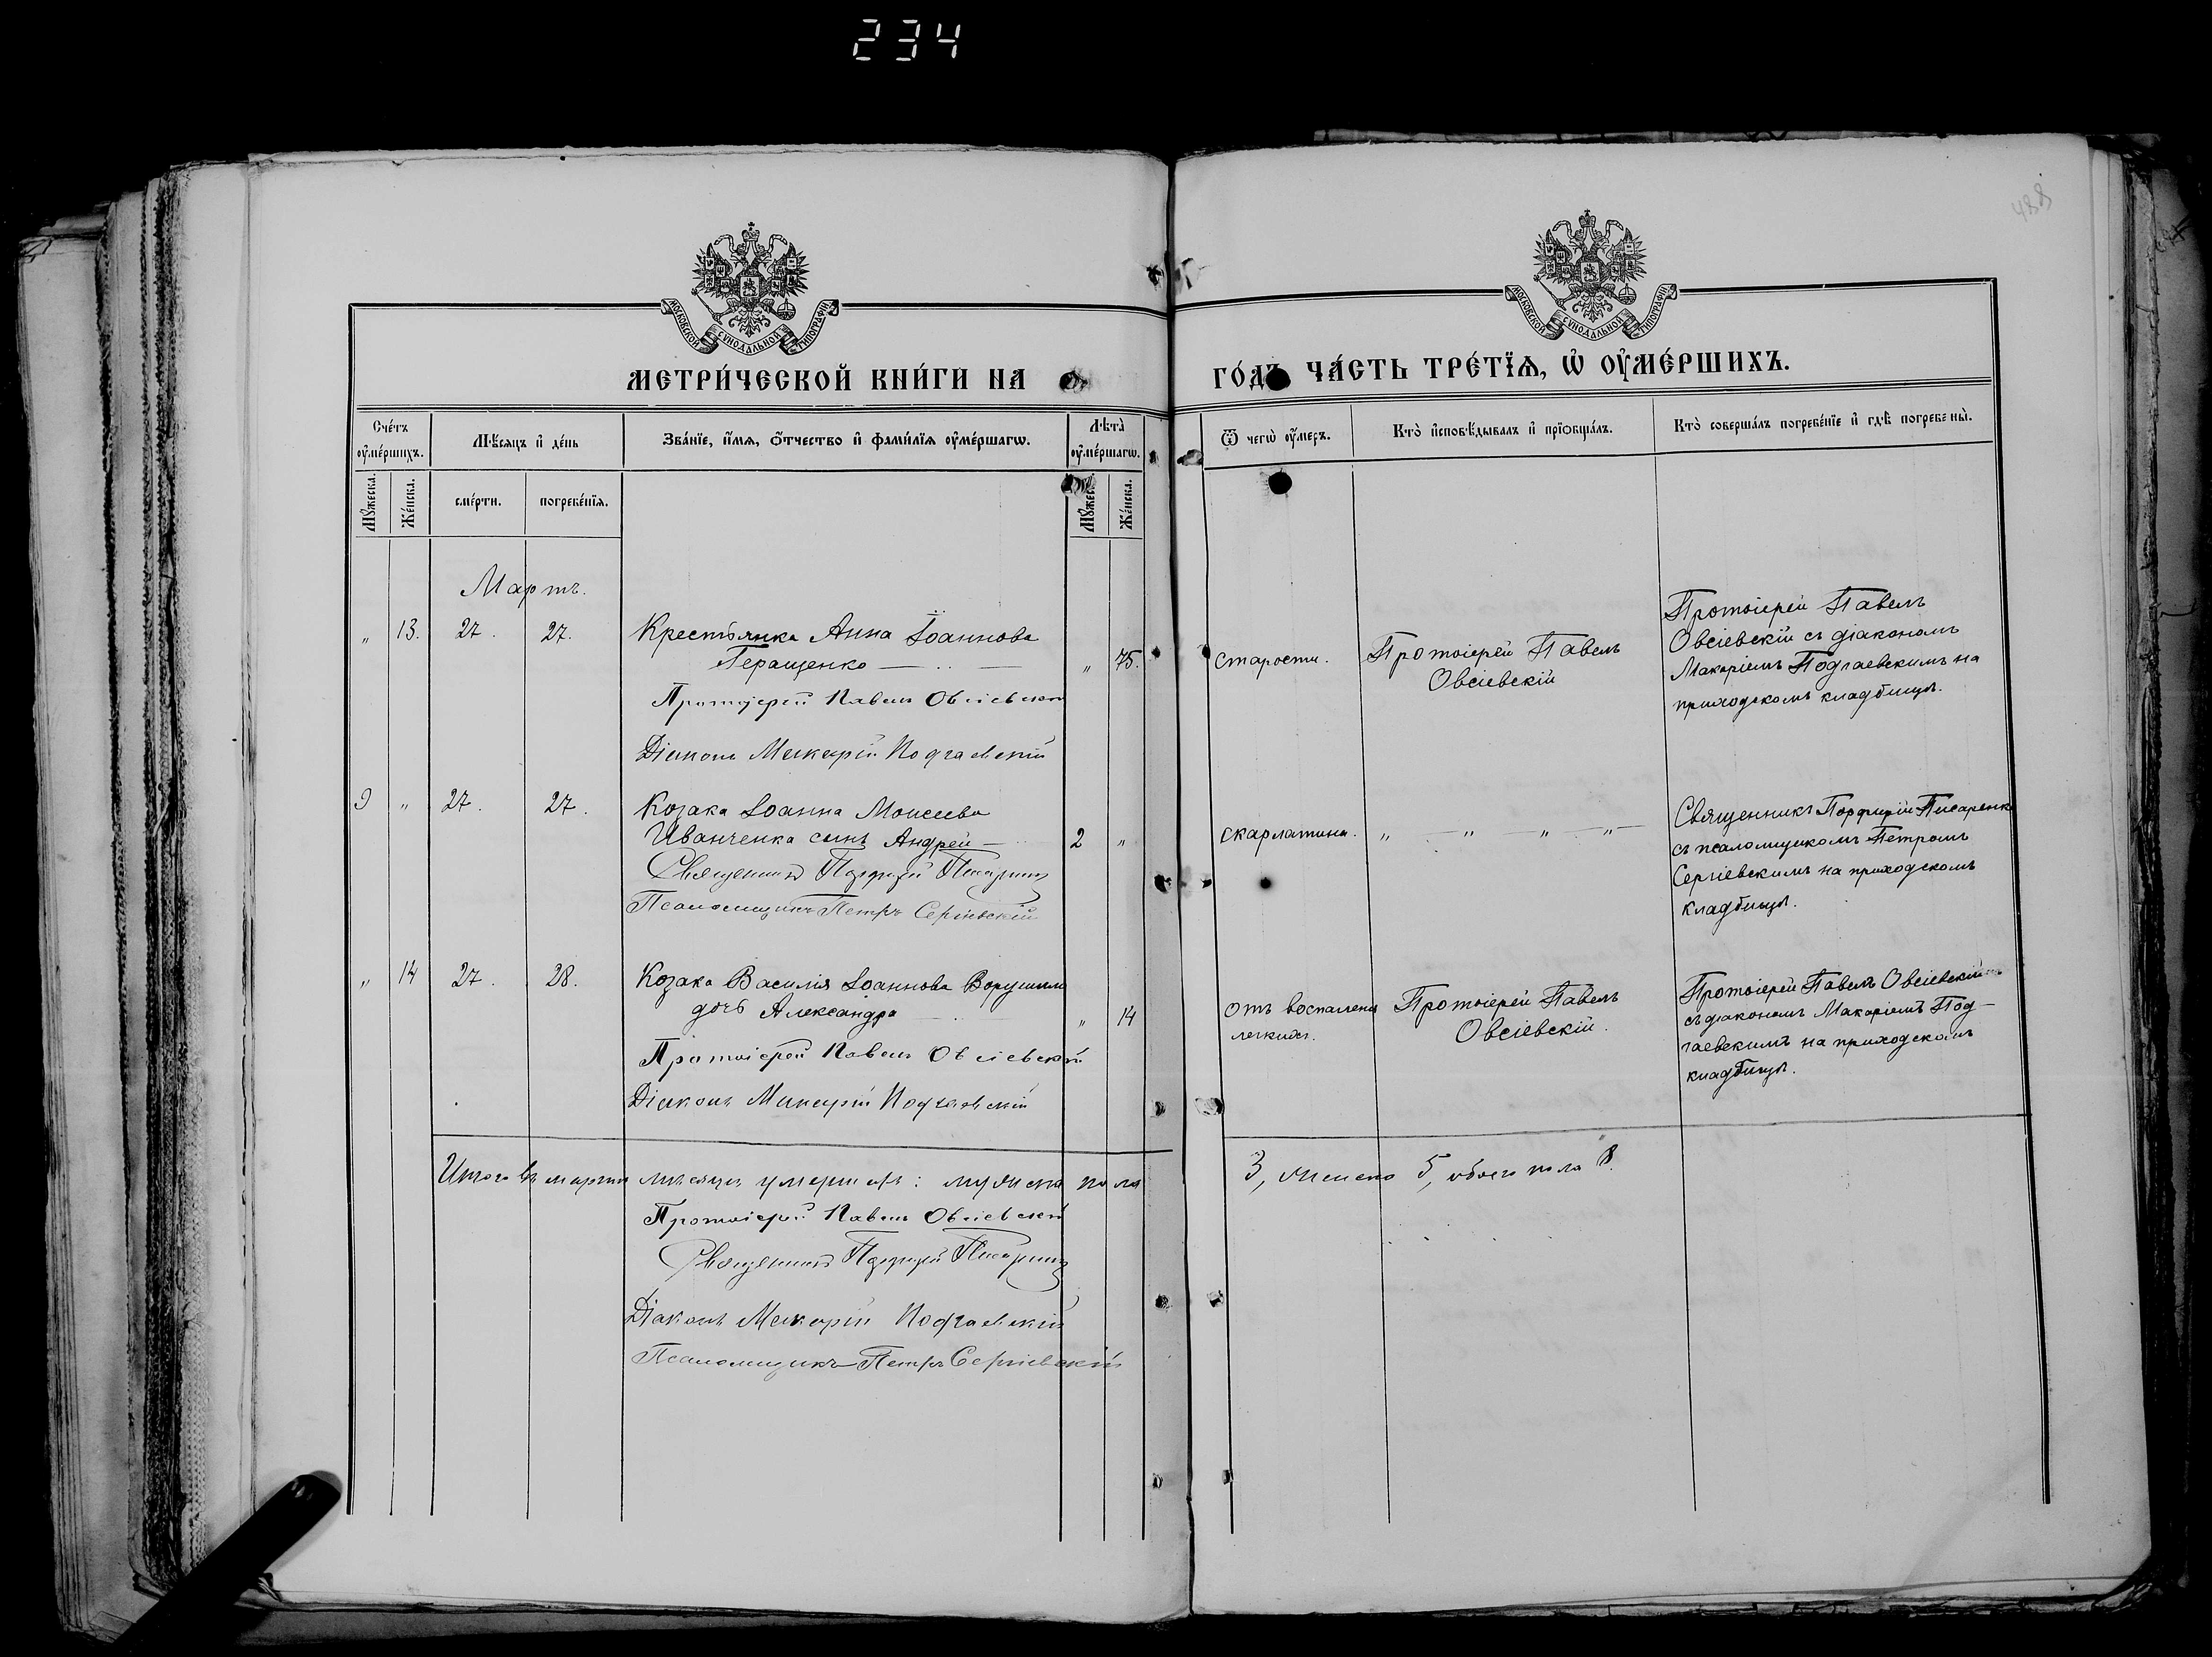 234
488
МОСКОВСКОЙ СѴНОДАЛЬНОЙ ТИПОГРАФІИ
МОСКОВСКОЙ СѴНОДАЛЬНОЙ ТИПОГРАФІИ
МЕТРИ́ЧЕСКОЙ КНИ́ГИ НА
ГО́ДЪ ЧА́СТЬ ТРЕ́ТЇѦ, Ѡ҆ ОУ҆МЕ́РШИХЪ.
Сче́тъ оу҆ме́ршихъ.
Мѣ́сѧцъ и҆ де́нь
Зва́нїе, и҆́мѧ, ѻ҆́тчество и҆ фами́лїѧ оу҆ме́ршагѡ.
Лѣ̑та̀ оу҆ме́ршагѡ.
Ѿ чегѡ̀ оу҆́меръ.
Кто̀ и҆сповѣ́дывалъ и҆ прїѡбща́лъ.
Кто̀ соверша́лъ погребе́нїе и҆ гдѣ̀ погребены̀.
Мꙋ́жеска.
Же́нска.
сме́рти.
погребе́нїѧ.
Мꙋ́жес
Же́нска.
Мартъ.
" 13. 27. 27. Крестьянка Анна Іоаннова
Геращенко — .. — " 75.
Протоіерей Павелъ Овсіевскій
Діаконъ Макарій Подгаевскій
старости. Протоіерей Павелъ
Овсіевскій
Протоіерей Павелъ
Овсіевскій съ діакономъ
Макаріемъ Подгаевскимъ на
приходскомъ кладбищѣ.
9 " 27. 27. Козака Іоанна Моисеева
Иванченка сынъ Андрей — 2 "
Священникъ Порфирій Писаренко
Псаломщикъ Петръ Сергіевскій
скарлатина. " — " — " — " —
Священникъ Порфирій Писаренко
съ псаломщикомъ Петромъ
Сергіевскимъ на приходскомъ
кладбищѣ.
" 14 27. 28. Козака Василія Іоаннова Ворушила
дочь Александра — " 14
Протоіерей Павелъ Овсіевскій
Діаконъ Макарій Подгаевскій
отъ воспаленія
легкихъ.
Протоіерей Павелъ
Овсіевскій.
Протоіерей Павелъ Овсіевскій
съ діакономъ Макаріемъ Под-
гаевскимъ на приходскомъ
кладбищѣ.
Итого въ мартѣ мѣсяцѣ умершихъ: мужска пола 3, женска 5, обоего пола 8.
Протоіерей Павелъ Овсіевскій
Священникъ Порфирій Писаренко
Діаконъ Макарій Подгаевскій
Псаломщикъ Петръ Сергіевскій